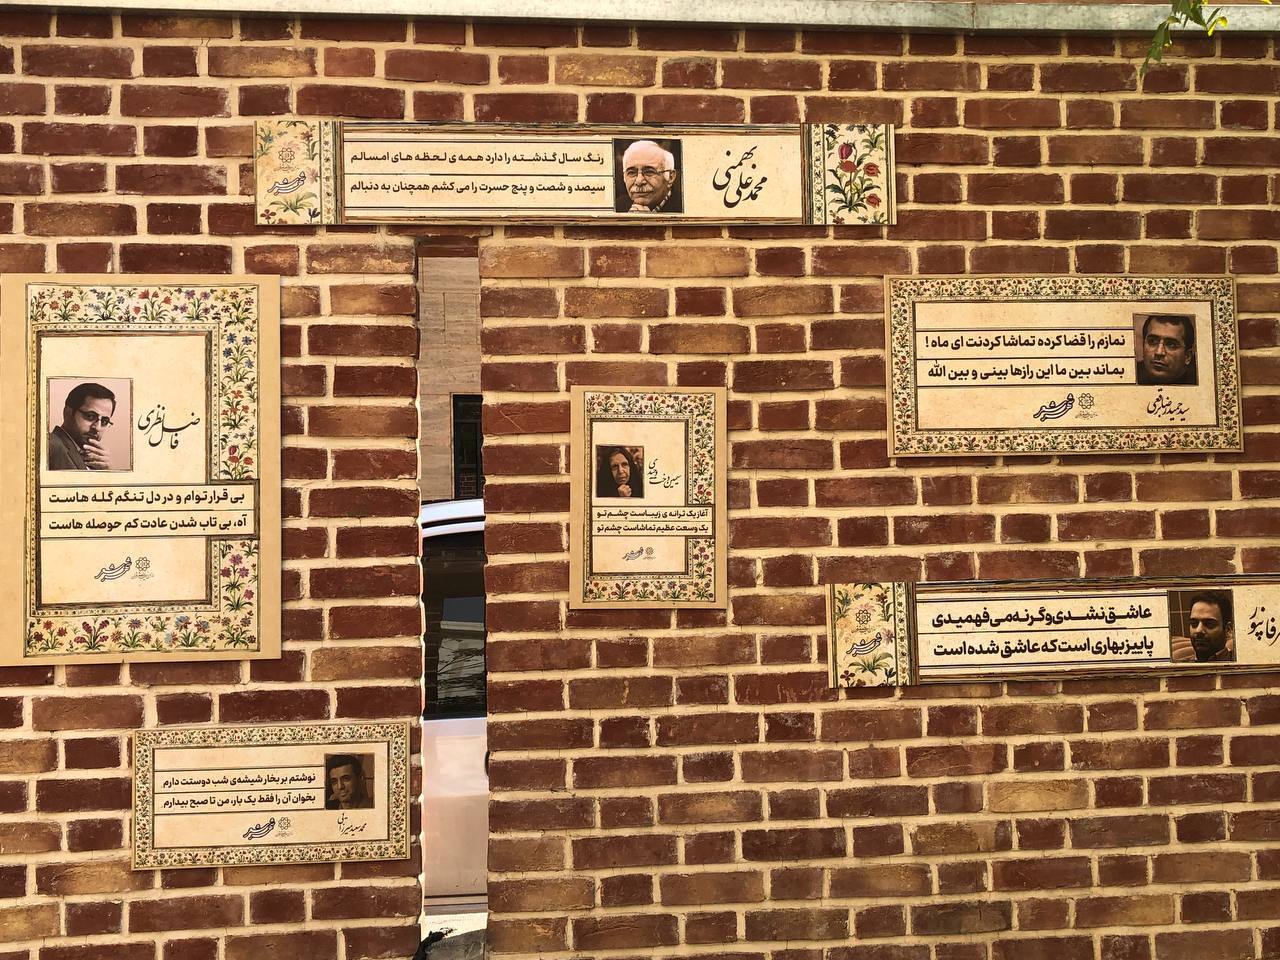 رنگ سال گذشته را دارد همه ی لحظه های امسالم
سیصد و شصت و پنج حسرت را می کشم همچنان به دنبالم
محمدعلی بهمنی
نمازم را قضا کرده تماشا کردنت ای ماه !
بماند بین ما این رازها بینی و بین الله
سید حمیدرضا برقعی
شهر شعر
فاضل نظری
بی قرار توام و در دل تنگم گله هاست
آه، بی تاب شدن عادت کم حوصله هاست
سیمین دخت وحیدی
آغاز یک ترانه ی زیباست چشم تو
یک وسعت عظیم تماشاست چشم تو
عاشق نشدی وگرنه می فهمیدی
پاییز بهاری است که عاشق شده است
نوشتم بر بخار شیشه‌ی شب دوستت دارم
بخوان آن را فقط یک بار، من تا صبح بیدارم
محمدسعید میرزائی